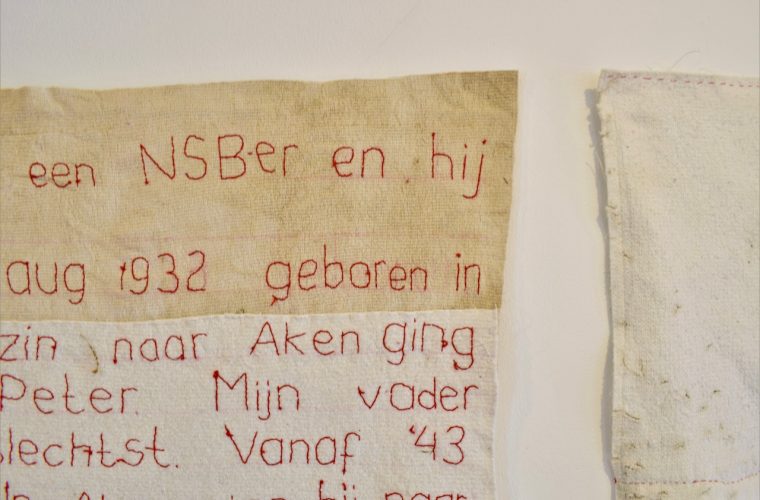 een NSB-er en hij
aug 1932 geboren in
zin naar Aken ging
Peter. Mijn vader
slechtst. Vanaf '43
hij naar